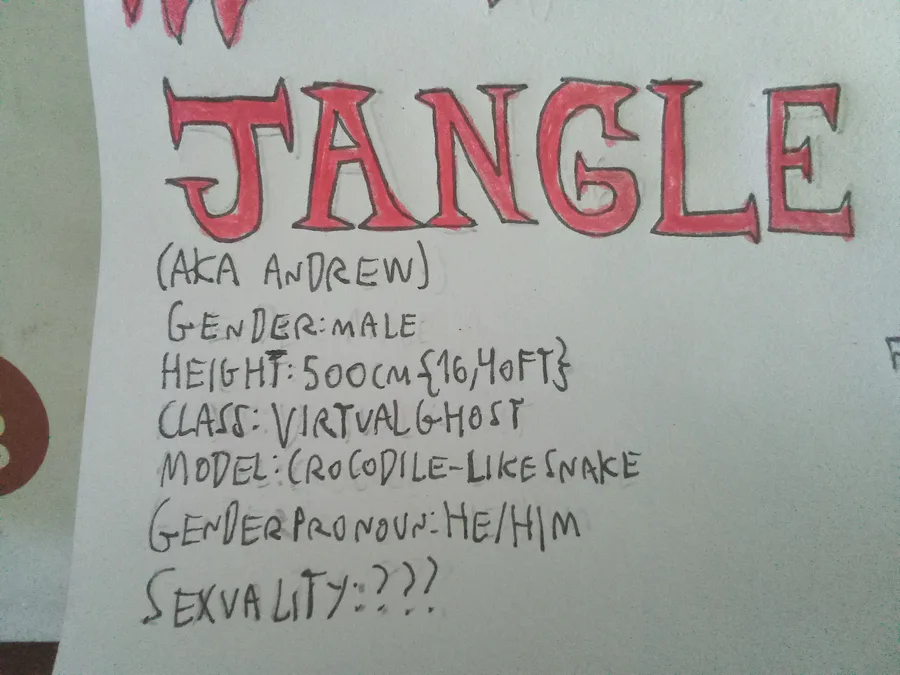 JANGLE
(AKA ANDREW)
GENDER:MALE
HEIGHT:500CM{16,40FT}
CLASS:VIRTUAL GHOST
MODEL:CROCODILE-LIKE SNAKE
GENDER PRONOUN:HE/HIM
SEXVALITY:???